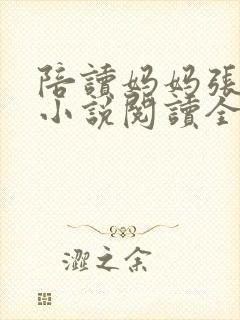 陪讀妈妈張
小說閱讀全
澀之余